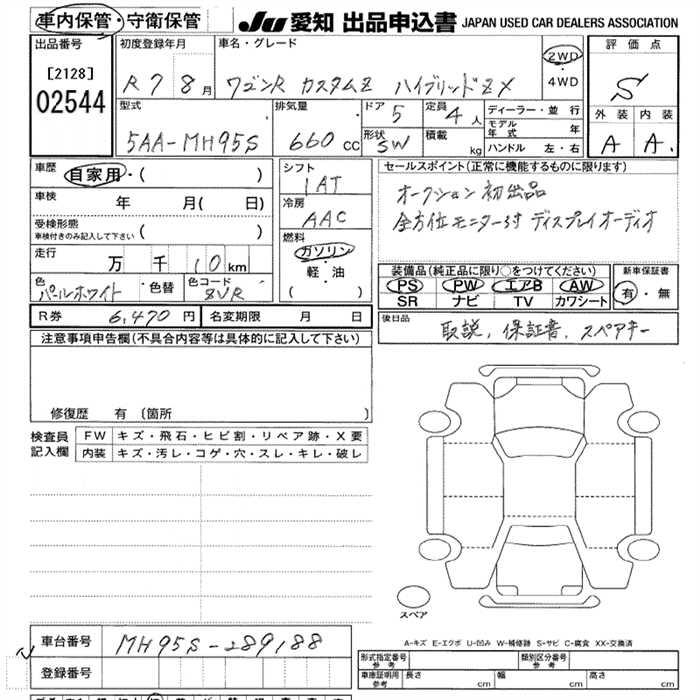 車内保管・守衛保管 JU 愛知 出品申込書 JAPAN USED CAR DEALERS ASSOCIATION
出品番号 [2128] 02544
初度登録年月 R7 8月
車名・グレード ワゴンR カスタムZ ハイブリッドZX
2WD・4WD
評価点 S
型式 5AA-MH95S
排気量 660cc
ドア 5 定員 4人
形状 SW 積載 kg
ディーラー・並行
モデル年式 年
ハンドル 左・右
外装 内装
A A
車歴 自家用・( )
車検 年 月( 日)
受検形態
車検付きのみ記入して下さい ( )
走行 万 千 10km
色 パールホワイト ・色替 色コード ZVR
シフト IAT
冷房 AAC
燃料 ガソリン・軽・油 ( )
セールスポイント(正常に機能するものに限ります)
オークション初出品
全方位モニター付ディスプレイオーディオ
装備品(純正品に限り○をつけてください)
PS PW エアB AW
SR ナビ TV カワシート
新車保証書
有・無
R券 6,470円 名変期限 月 日
後日品 取説, 保証書, スペアキー
注意事項申告欄(不具合内容等は具体的に記入して下さい)
修復歴 有〔箇所 〕
検査員記入欄
FW キズ・飛石・ヒビ割・リペア跡・X要
内装 キズ・汚レ・コゲ・穴・スレ・キレ・破レ
スペア
車台番号 MH95S-289188
登録番号
A-キズ E-エクボ U-凹み W-補修跡 S-サビ C-腐食 XX-交換済
形式指定番号参考 類別区分番号参考
車庫証明用参考 長さ cm 幅 cm 高さ cm